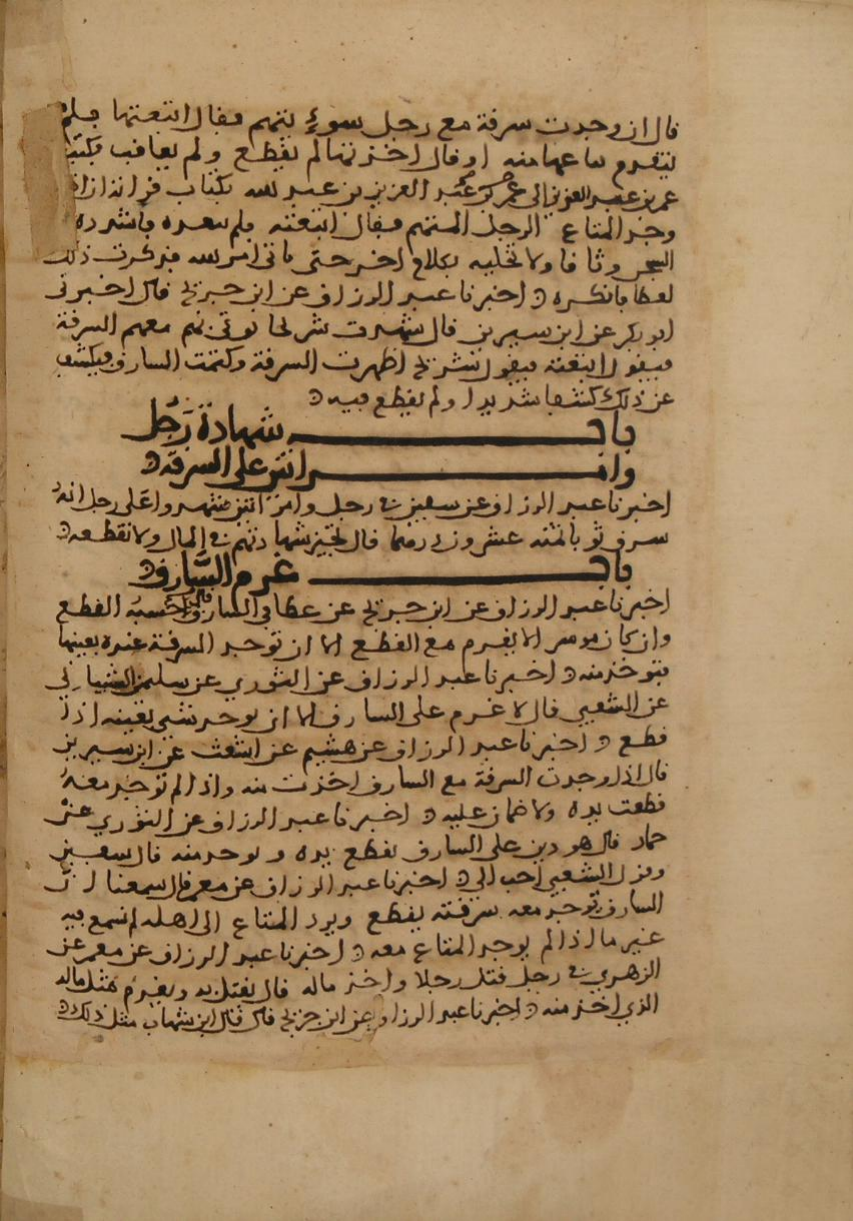 قال ان وجدت سرقة مع رجل سوء يتهم فقال ابتعتها فلم
ينقدم بياعها منه او قال اخذتها لم يقطع ولم يعاقب فكتب
عمر بن عبد العزيز الى عبد العزيز بن عبد لله بكتاب قراته اذا
وجد المتاع الرجل المتهم فقال ابتعته فلم ينفذه فاشدده
السجن وثاقا ولا تخليه بكلام احد حتى ياتى امر لله فذكرت ذلك
لعطا فانكره اخبرنا عبد الرزاق عن ابن جريج قال اخبرنى
ابو بكر عن ابن سيرين قال شهدت شريحا يوتى بهم معهم السرقة
فيقول ابتعته فيقول شريح اظهرت السرقة وكتمت السارق فيكشف
عن ذلك كشفا شديدا ولم يقطع فيه
باب شهادة رجل
وامراتين على السرقة
اخبرنا عبد الرزاق عن سفين في رجل وامراتين شهدوا على رجل انه
سرق ثوبا ثمنه عشرون درهما قال نجيز شهادتهم في المال ولا نقطعه
باب غرم السارق
اخبرنا عبد الرزاق عن ابن جريج عن عطا في السارق قال حسبه القطع
وان كان موسرا لا يغرم مع القطع الا ان توجد السرقة عنده بعينها
فتوخذ منه اخبرنا عبد الرزاق عن الثوري عن سليمن الشيباني
عن الشعبي قال لا غرم على السارق الا ان يوجد شي بعينه اذا
قطع اخبرنا عبد الرزاق عن هشيم عن اشعث عن ابن سيرين
قال اذا وجدت السرقة مع السارق اخذت منه واذا لم توجد معه
قطعت يده ولا ضمان عليه اخبرنا عبد الرزاق عن الثوري عن
حماد قال هو دين على السارق تقطع يده و يوخذ منه قال سفين
وقول الشعبي احب الي اخبرنا عبد الرزاق عن معمر قال سمعنا ان
السارق توجد معه سرقته يقطع ويرد المتاع الى اهله لم نسمع فيه
غير ما اذا لم يوجد المتاع معه اخبرنا عبد الرزاق عن معمر عن
الزهري في رجل قتل رجلا واخذ ماله قال يقتل به ويغرم مثل ماله
الذي اخذ منه اخبرنا عبد الرزاق عن ابن جريج قال قال ابن شهاب مثل ذلك